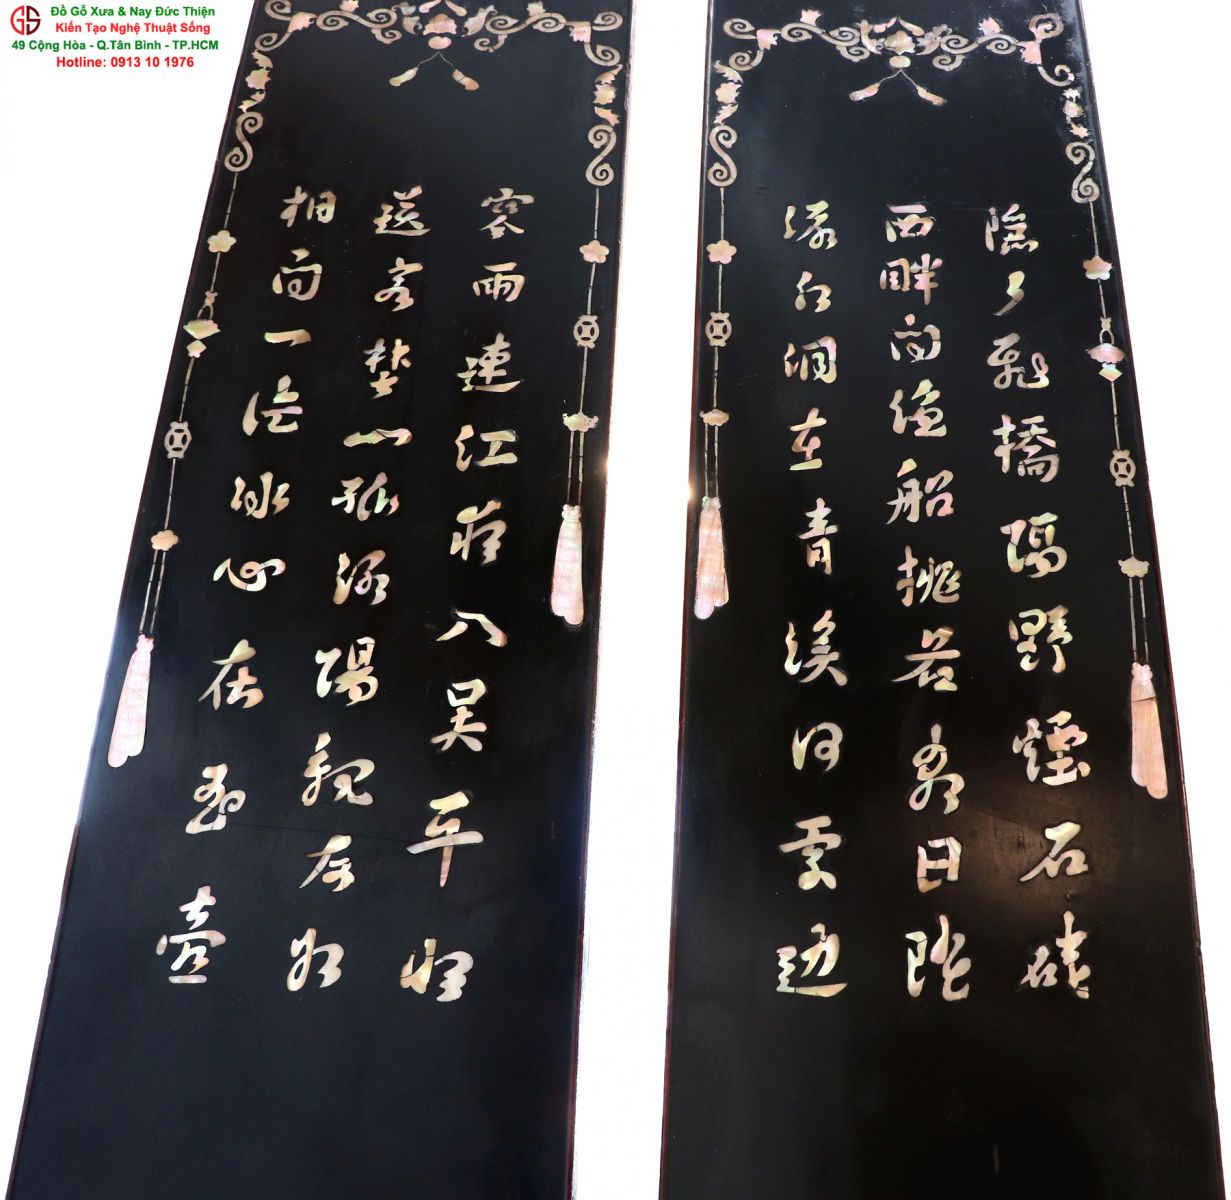 Đồ Gỗ Xưa & Nay Đức Thiện
Kiến Tạo Nghệ Thuật Sống
49 Cộng Hòa - Q.Tân Bình - TP.HCM
Hotline: 0913 10 1976
隱々飛橋隔野煙石磯
西畔問漁船桃花盡日隨
流水洞在青溪何處邊
寒雨連江夜入吳平明
送客楚山孤洛陽親友如
相問一片冰心在玉壺